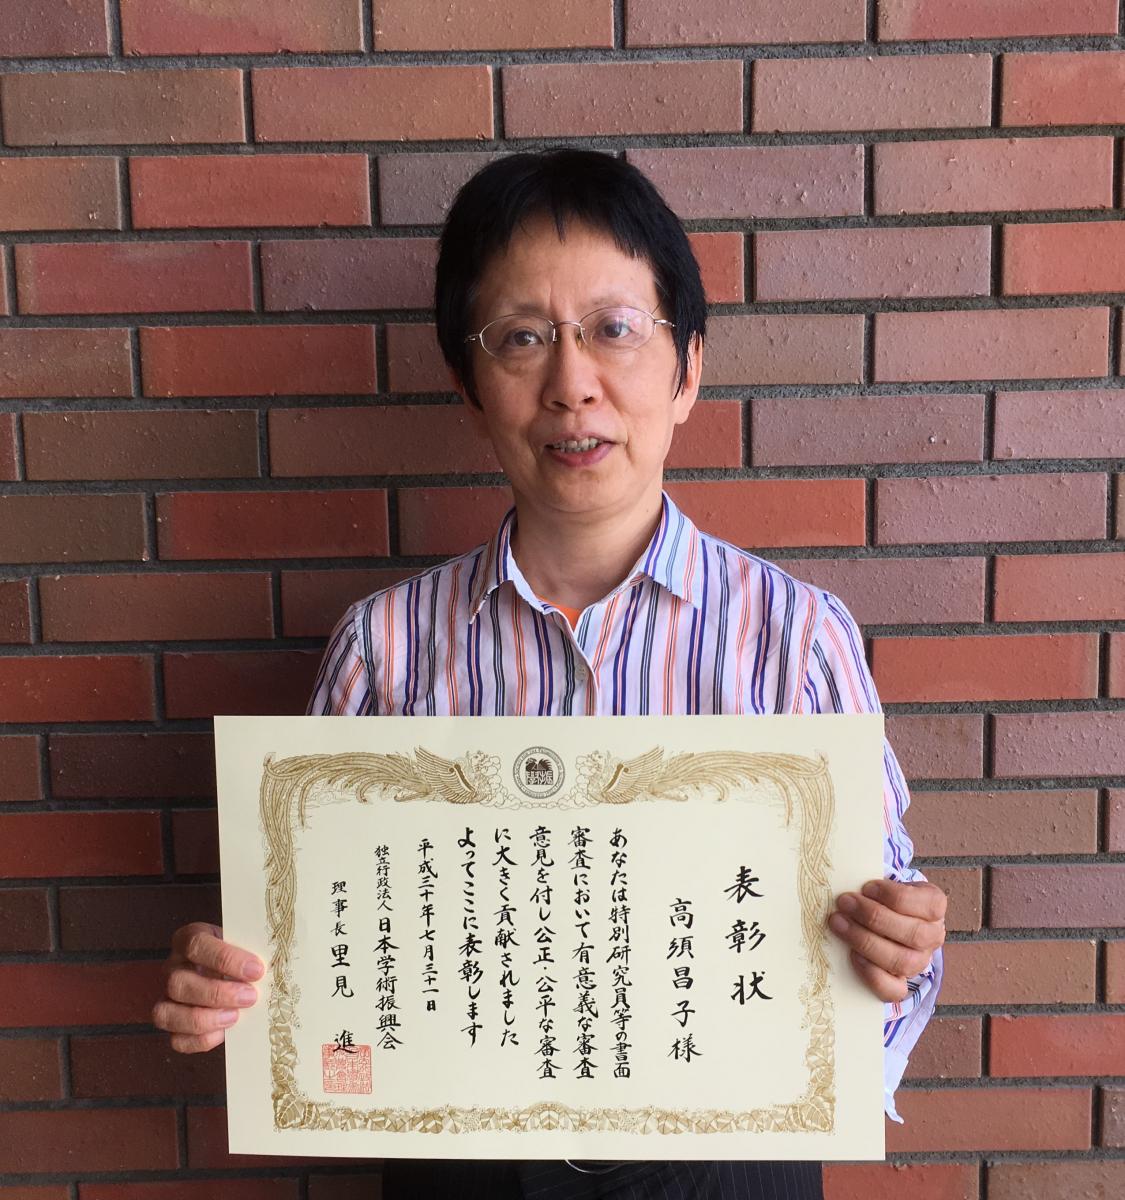 表彰状
高須昌子様
あなたは特別研究員等の書面
審査において有意義な審査
意見を付し公正・公平な審査
に大きく貢献されました
よってここに表彰します
平成三十年七月三十一日
独立行政法人日本学術振興会
理事長 里見 進